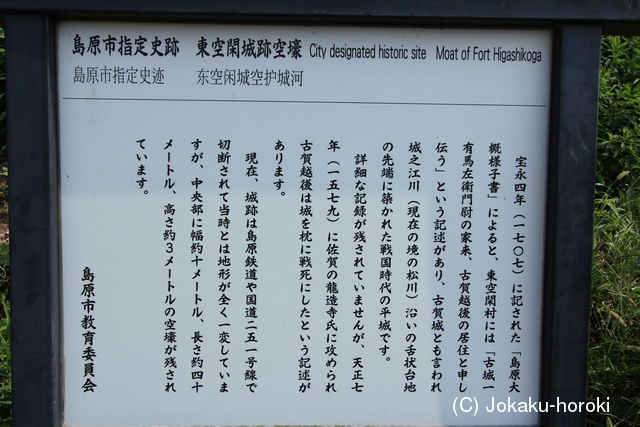 島原市指定史跡 東空閑城跡空壕 City designated historic site Moat of Fort Higashikoga
島原市指定史迹 东空闲城空护城河
宝永四年（一七〇七）に記された「島原大
概様子書」によると、東空閑村には「古城一
有馬左衛門尉の家来、古賀越後の居住と申し
伝う」という記述があり、古賀城とも言われ
城之江川（現在の境の松川）沿いの舌状台地
の先端に築かれた戦国時代の平城です。
詳細な記録が残されていませんが、天正七
年（一五七九）に佐賀の龍造寺氏に攻められ
古賀越後は城を枕に戦死にしたという記述が
あります。
現在、城跡は島原鉄道や国道二五一号線で
切断されて当時とは地形が全く一変していま
すが、中央部に幅約十メートル、長さ約四十
メートル、高さ約３メートルの空壕が残され
ています。
島原市教育委員会
(C) Jokaku-horoki